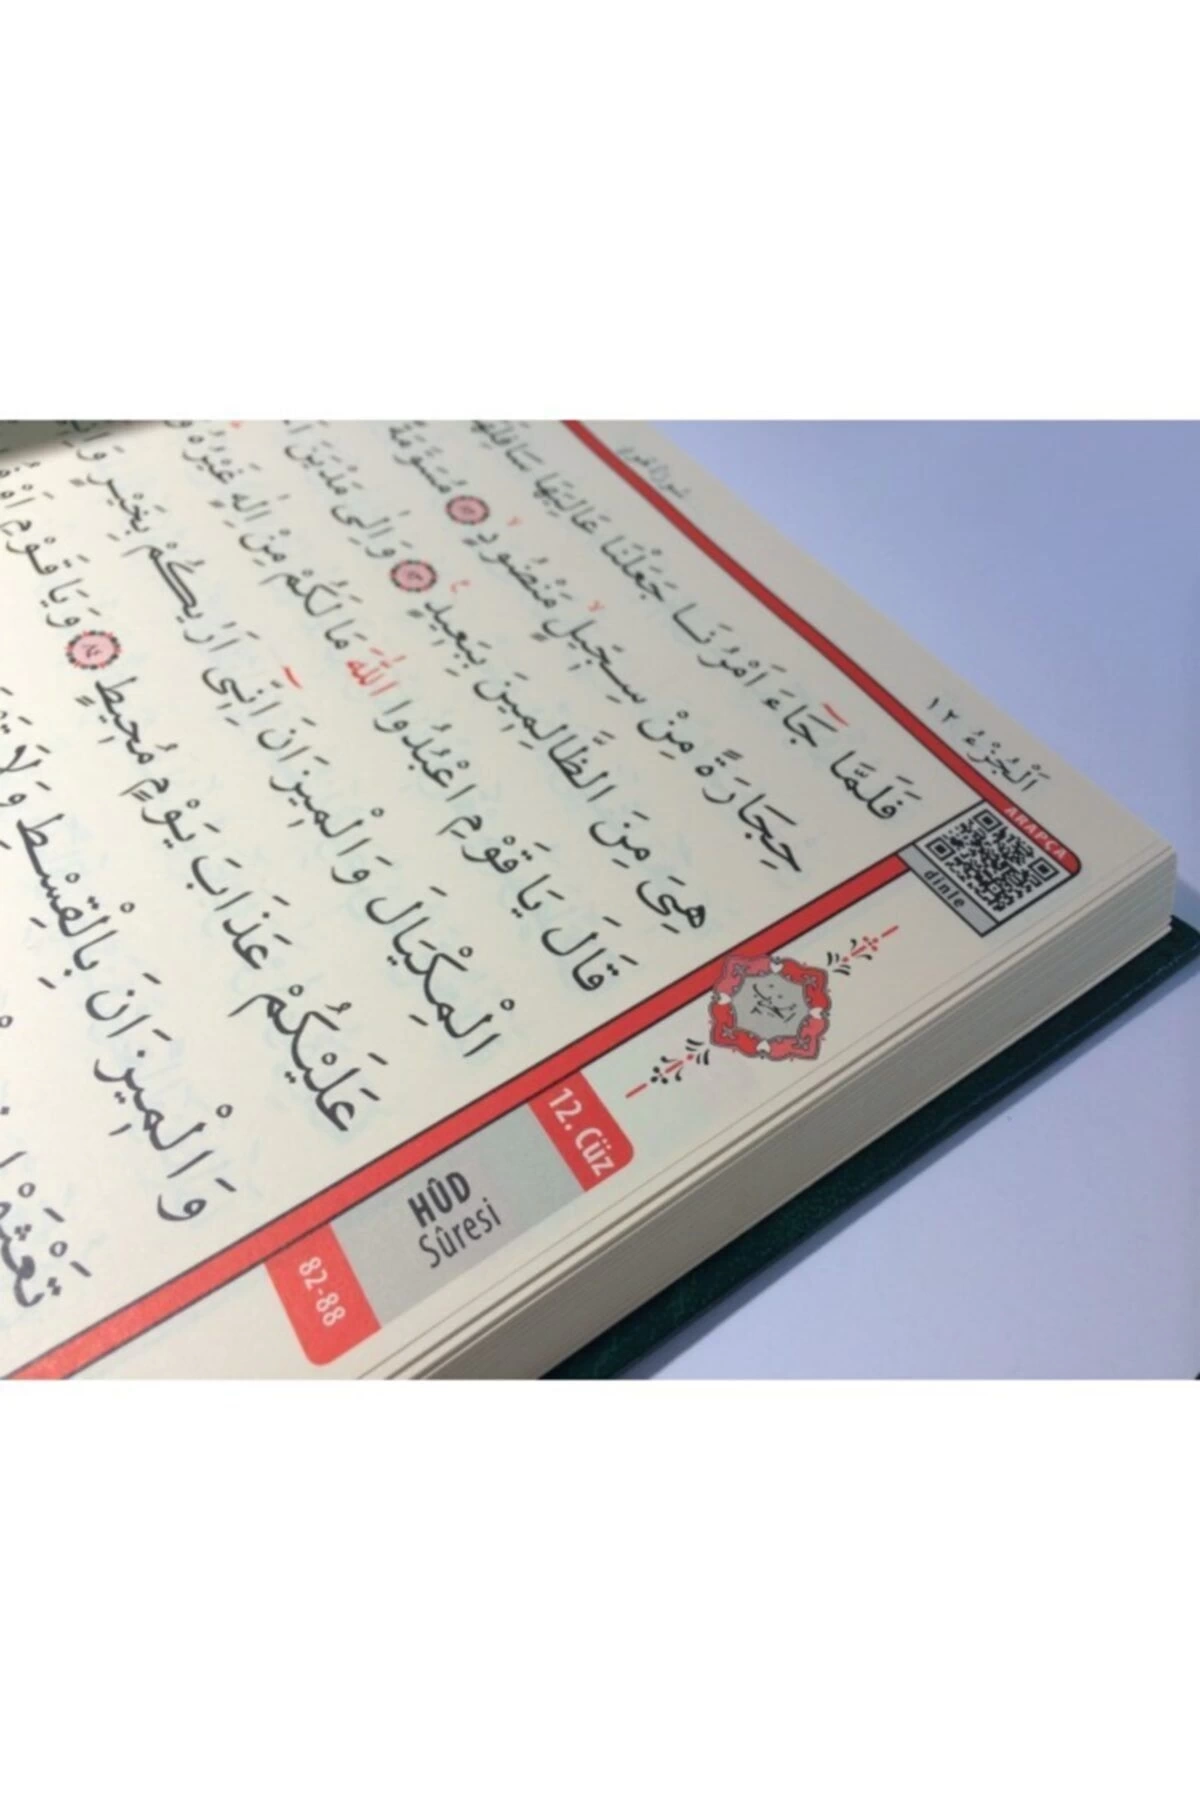 اَلْجُزْءُ ١٢
ARAPÇA
dinle
فَلَمَّا جَٓاءَ اَمْرُنَا جَعَلْنَا عَالِيَهَا سَافِلَهَا
حِجَارَةً مِنْ سِجّ۪يلٍ مَنْضُودٍۙ ﴿٨٢﴾ مُسَوَّمَةً
هِيَ مِنَ الظَّالِم۪ينَ بِبَع۪يدٍ۟ ﴿٨٣﴾ وَاِلٰى مَدْيَنَ
قَالَ يَا قَوْمِ اعْبُدُوا اللّٰهَ مَا لَكُمْ مِنْ اِلٰهٍ غَيْرُهُ
الْمِكْيَالَ وَالْم۪يزَانَ اِنّ۪ٓي اَرٰيكُمْ بِخَيْرٍ
عَلَيْكُمْ عَذَابَ يَوْمٍ مُح۪يطٍ ﴿٨٤﴾ وَيَا قَوْمِ
وَالْم۪يزَانَ بِالْقِسْطِ وَلَا
12. Cüz
HÛD
Sûresi
82-88